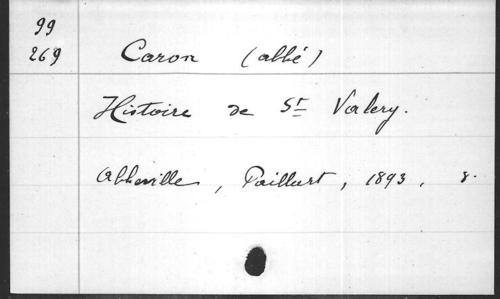 99
269
Caron (abbé)
Histoire de St Valery.
Abbeville, Paillart, 1893, 8.